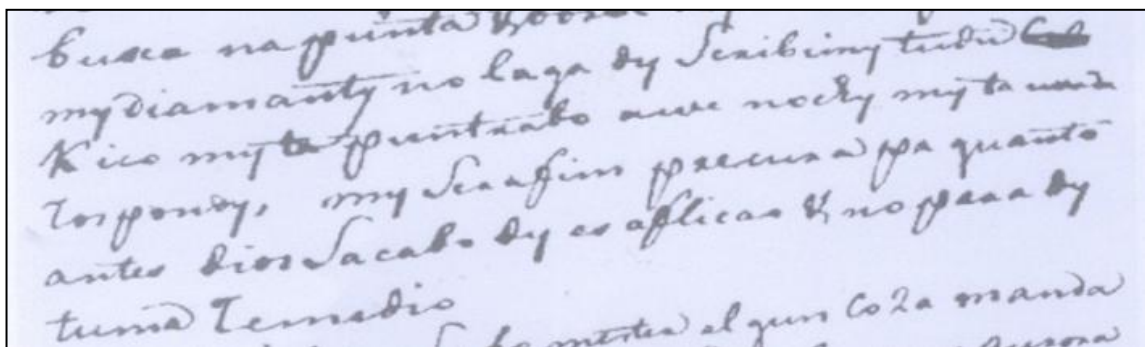 busca na punta
my diamanty no laga dy Scribimy tudu
Kico my ta puntrabo awe nochy my ta
respondy, my Serafim precura pa quanto
antes dios Sacabo dy es aflicao & no para dy
tuma Remedio
bo mester algun Coza manda